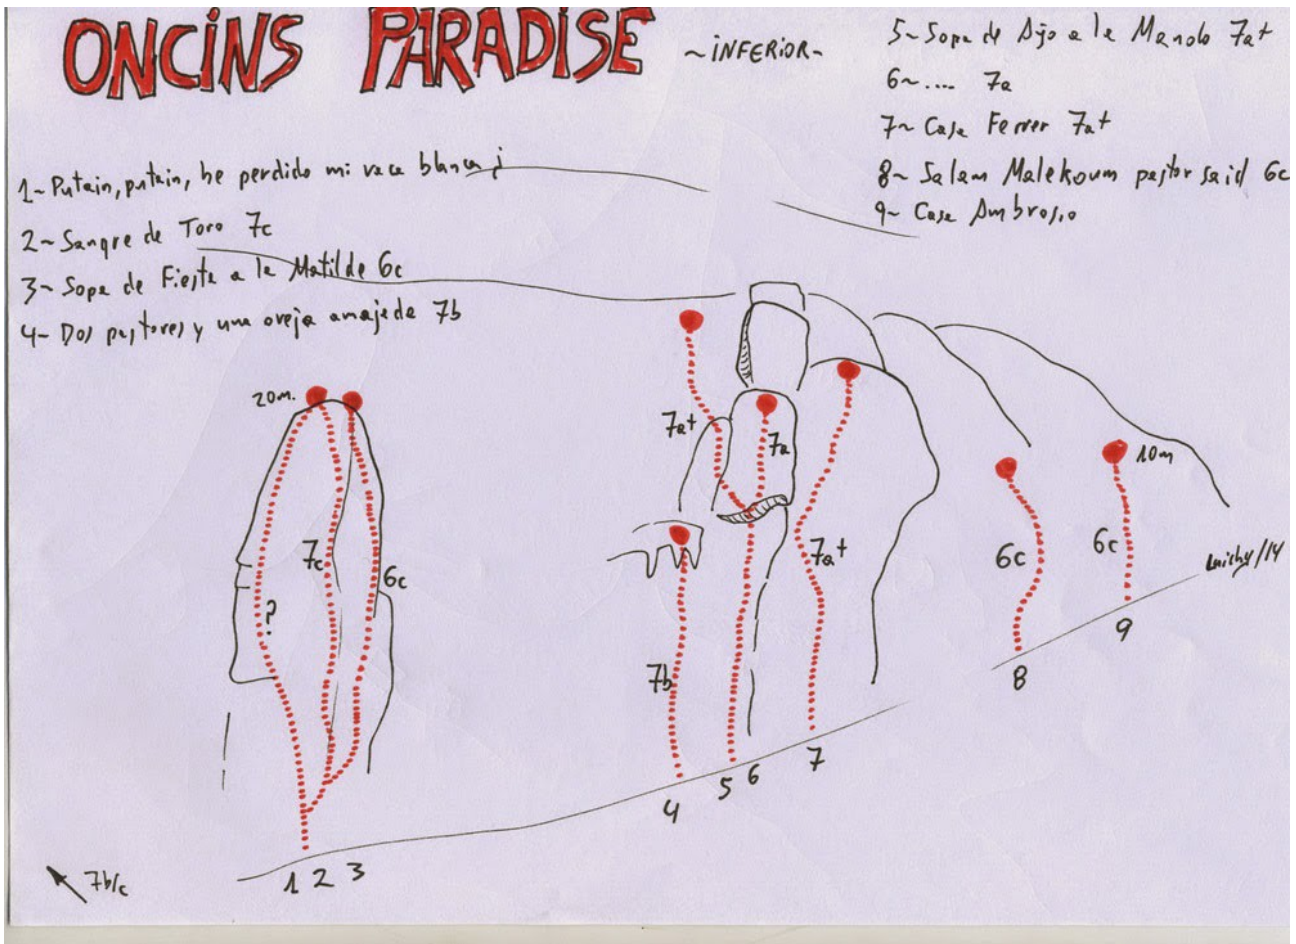 ONCINS PARADISE ~INFERIOR~
1~ Putain, putain, he perdido mi vaca blanca ¡
2~ Sangre de Toro 7c
3~ Sopa de Fiesta a la Matilde 6c
4~ Dos pastores y una oveja amajada 7b
5~ Sopa de Ajo a la Manolo 7a+
6~.... 7a
7~ Casa Ferrer 7a+
8~ Salam Malekoum pastor said 6c
9~ Casa Ambrosio
20m.
7a+
7a
10m
7c
6c
7a+
6c
6c
?
7b
1 2 3
4
5
6
7
8
9
7b/c